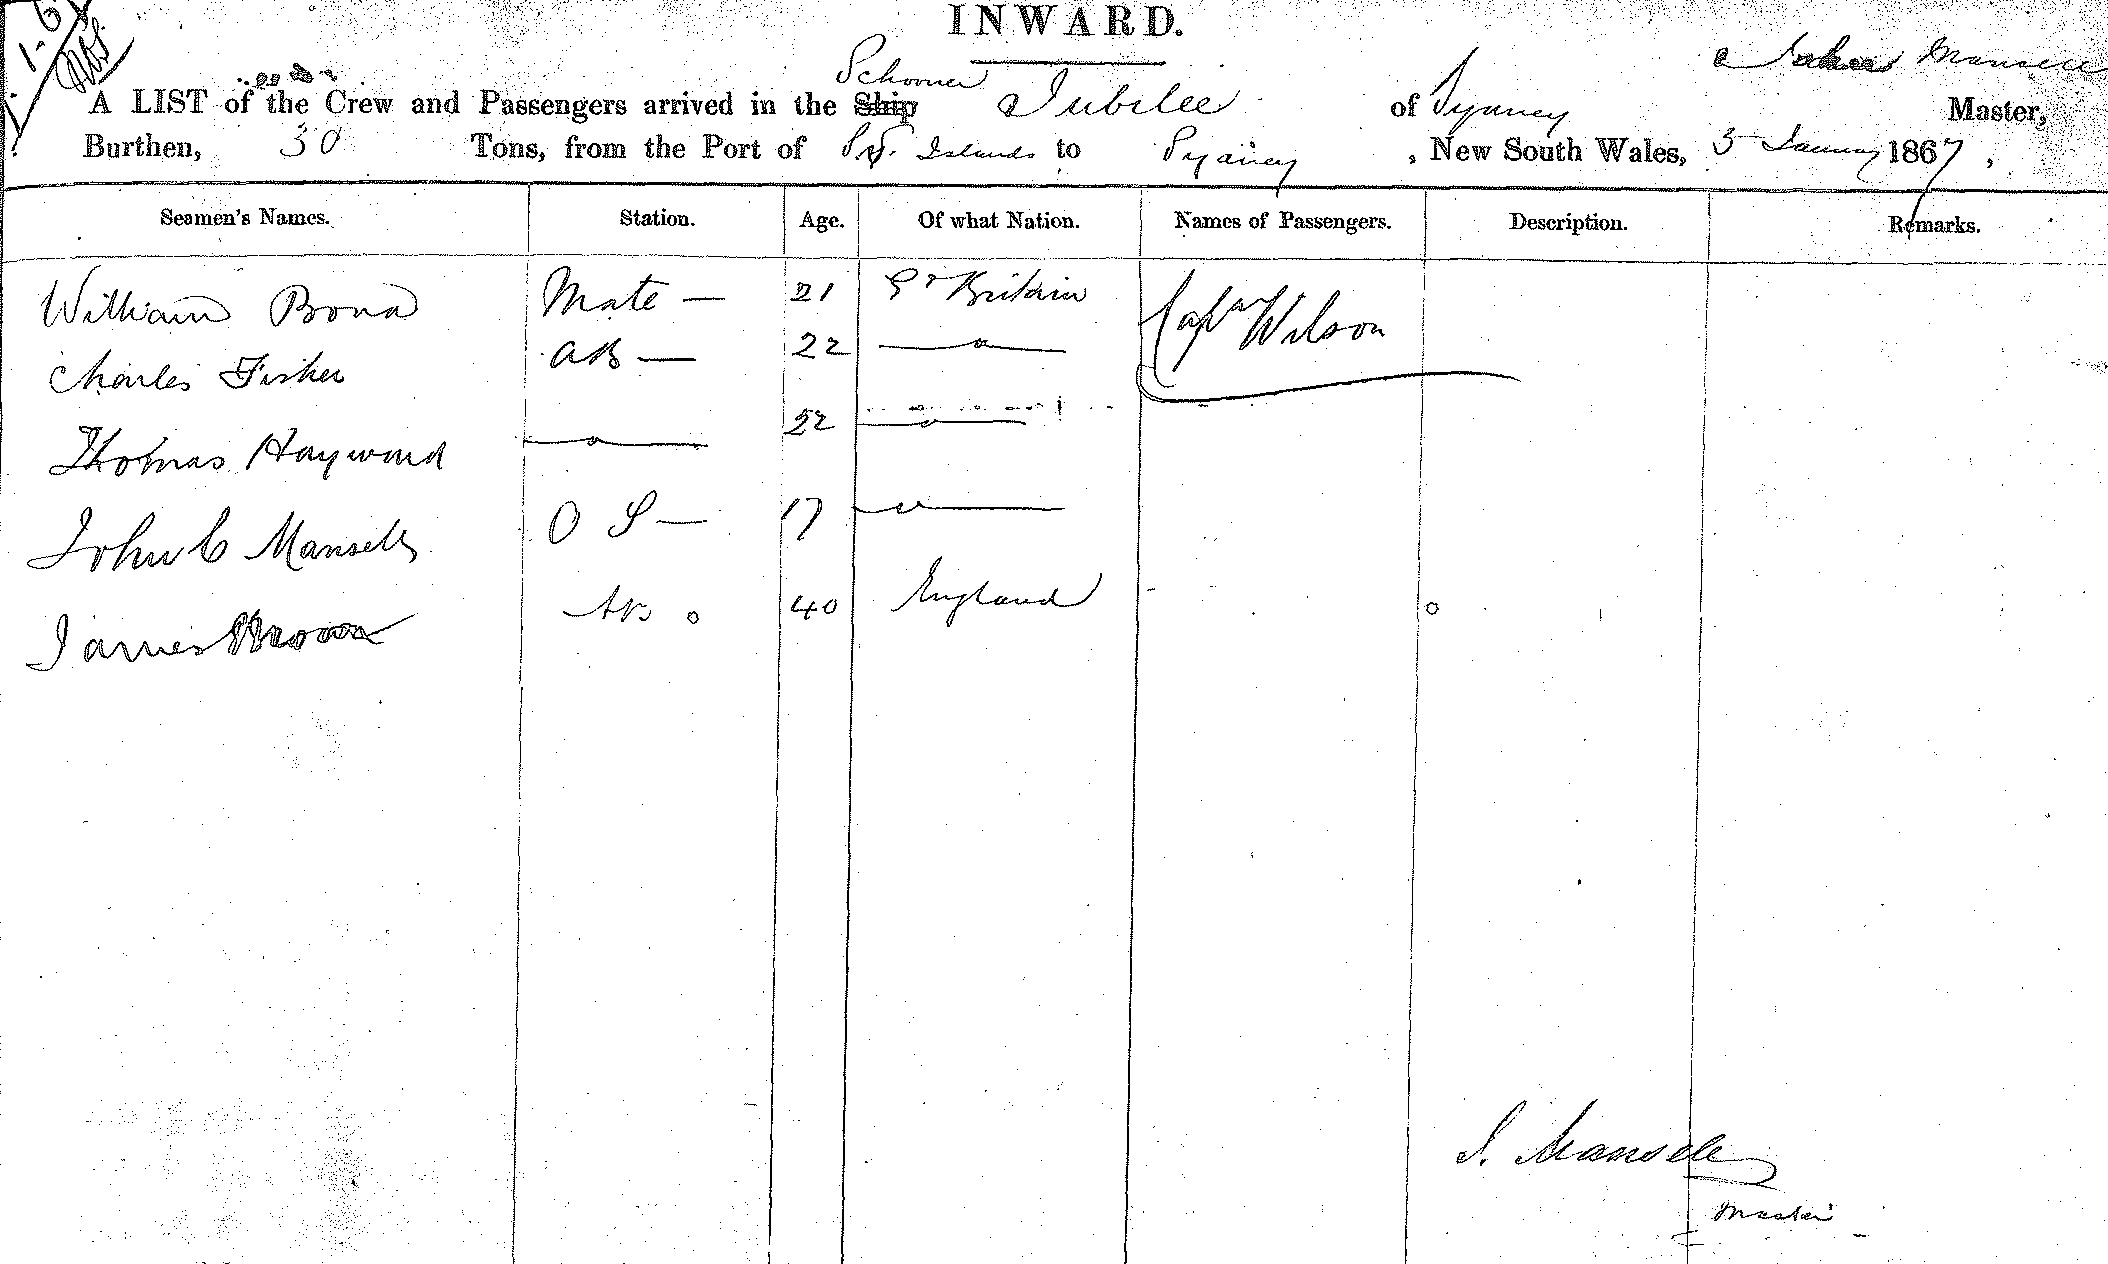 INWARD.
Schooner
Mansell
A LIST of the Crew and Passengers arrived in the Ship Jubilee of Sydney Master,
Burthen, 30 Tons, from the Port of S. S. Islands to Sydney, New South Wales, 5 January 1867,
Seamen's Names. Station. Age. Of what Nation. Names of Passengers. Description. Remarks.
William Bond Mate — 21 Gr Britain Captn Wilson
Charles Fisher AB — 22 — " —
Thomas Hayward — " — 22 — " —
John C Mansell O S — 17 — " —
James Brown AB 40 England
J. Mansell
Master